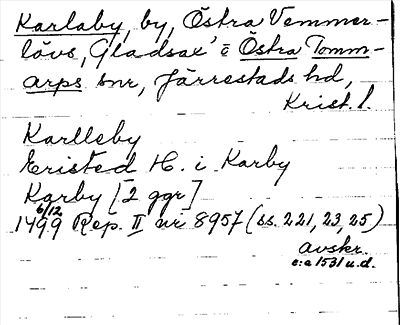 Karlaby, by, Östra Vemmer-
lövs, Gladsax' o Östra Tomm-
arps snr, Järrestads hd,
Krist. l.
Karlleby
Eristed H. i Karby
Karby [2 ggr]
6/12
1499 Rep. II nr 8957 (ss. 221, 23, 25)
avskr.
c:a 1531 u.d.